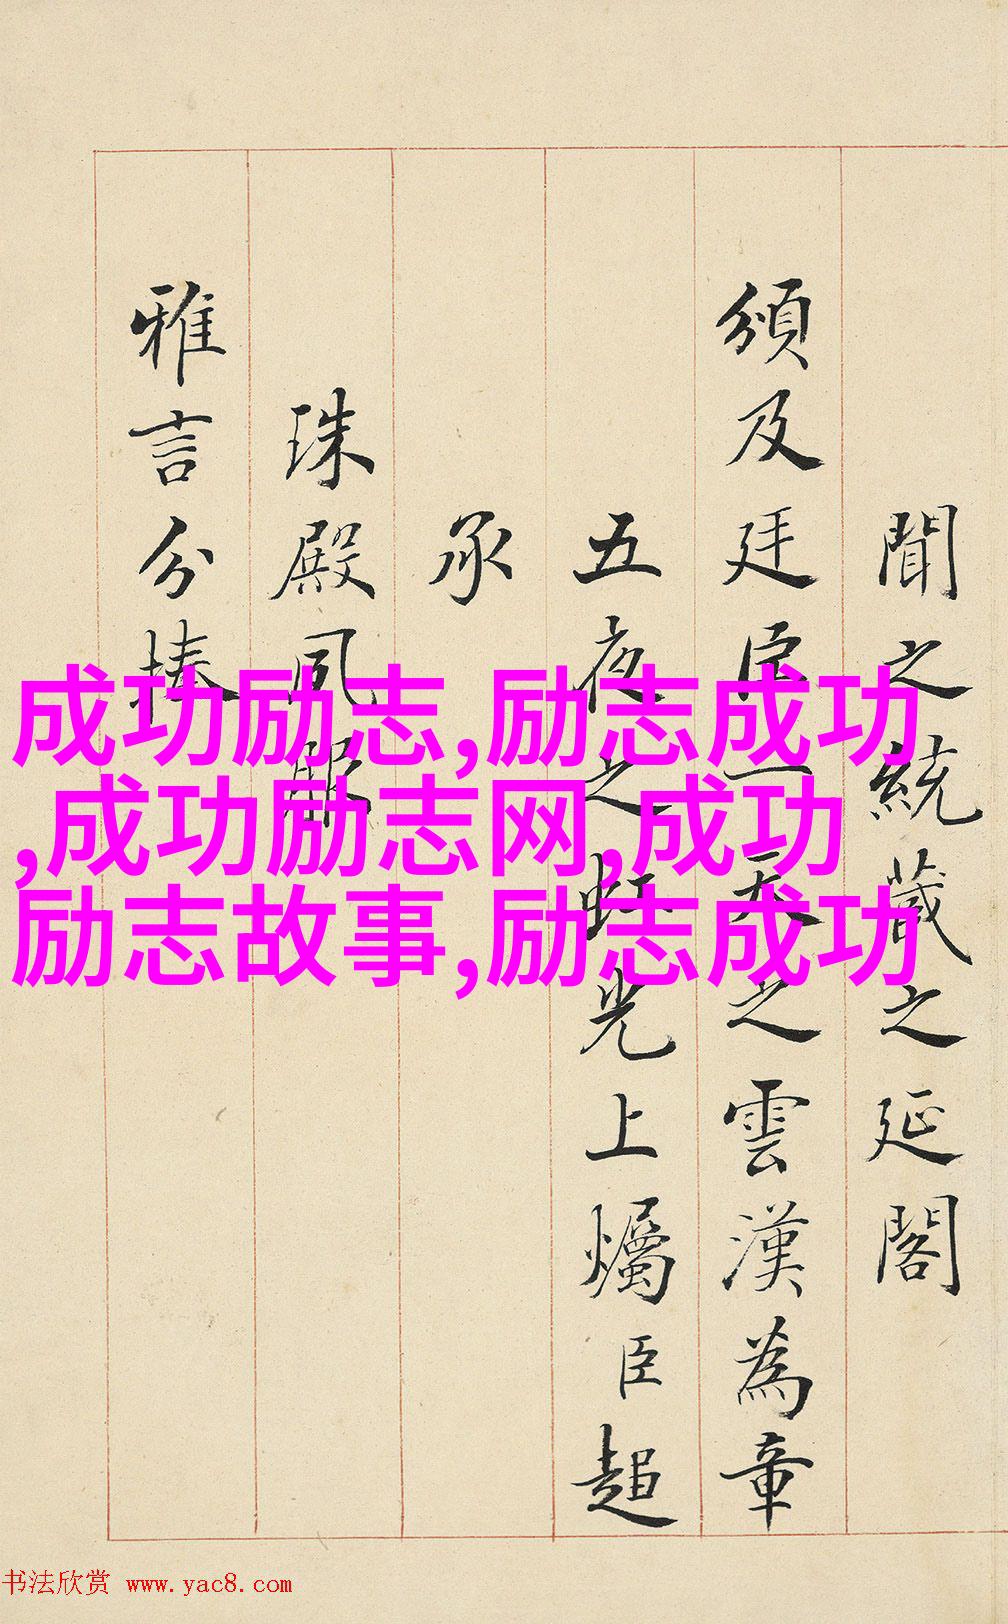 聞之統藏之延閣
頒及廷臣一天之雲漢為章
五夜之虹光上燭臣趄
承
珠殿夙服
雅言分捧
成功励志,励志成功
,成功励志网,成功
励志故事,励志成功
书法欣赏 www.yac8.com